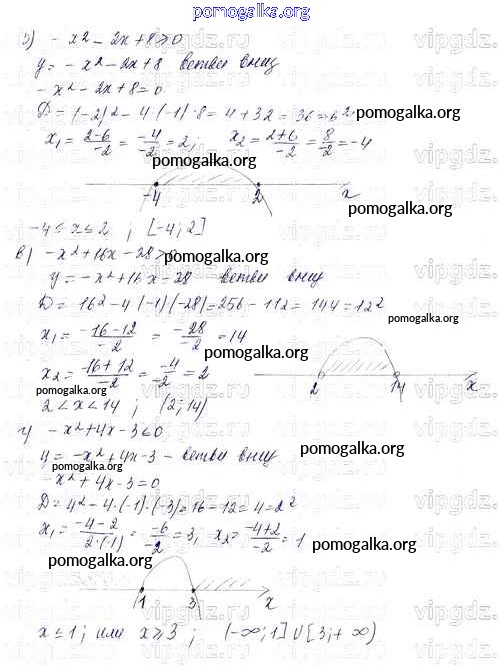 pomogalka.org
б) -x² - 2x + 8 ≥ 0
y = -x² - 2x + 8 ветви вниз
-x² - 2x + 8 = 0
D = (-2)² - 4·(-1)·8 = 4 + 32 = 36 = 6²
pomogalka.org
x₁ = (2-6)/-2 = -4/-2 = 2; x₂ = (2+6)/-2 = 8/-2 = -4
pomogalka.org
-4 2 x
pomogalka.org
-4 ≤ x ≤ 2 ; [-4; 2]
в) -x² + 16x - 28 > 0
pomogalka.org
y = -x² + 16x - 28 ветви вниз
D = 16² - 4·(-1)·(-28) = 256 - 112 = 144 = 12²
pomogalka.org
x₁ = (-16-12)/-2 = -28/-2 = 14
pomogalka.org
x₂ = (-16+12)/-2 = -4/-2 = 2
2 14 x
pomogalka.org
2 < x < 14 ; (2; 14)
г) -x² + 4x - 3 ≤ 0
pomogalka.org
y = -x² + 4x - 3 - ветви вниз
pomogalka.org
-x² + 4x - 3 = 0
D = 4² - 4·(-1)·(-3) = 16 - 12 = 4 = 2²
pomogalka.org
x₁ = (-4-2)/2·(-1) = -6/-2 = 3, x₂ = (-4+2)/-2 = 1
pomogalka.org
pomogalka.org
1 3 x
x ≤ 1; или x ≥ 3 ; (-∞; 1] U [3; +∞)
pomogalka.org
vipgdz.ru